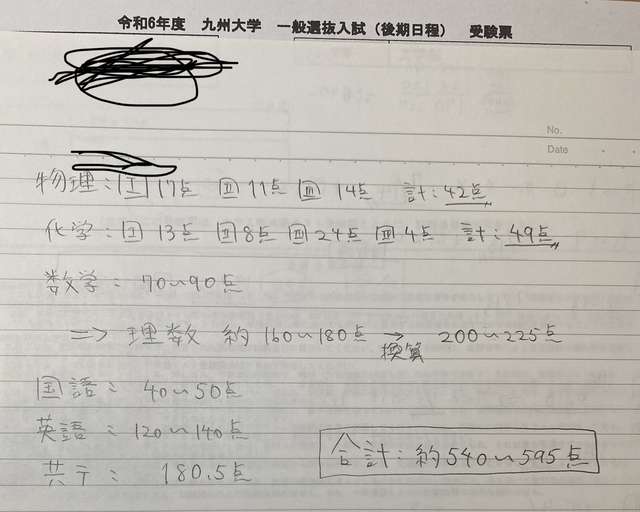 令和6年度 九州大学 一般選抜入試（後期日程） 受験票
No.
Date
物理：Ⅰ 17点 Ⅱ 11点 Ⅲ 14点 計：42点
化学：Ⅰ 13点 Ⅱ 8点 Ⅲ 24点 Ⅲ 4点 計：49点
数学：70〜90点
=> 理数 約160〜180点 → 200〜225点
換算
国語：40〜50点
英語：120〜140点
共テ：180.5点
合計：約540〜595点